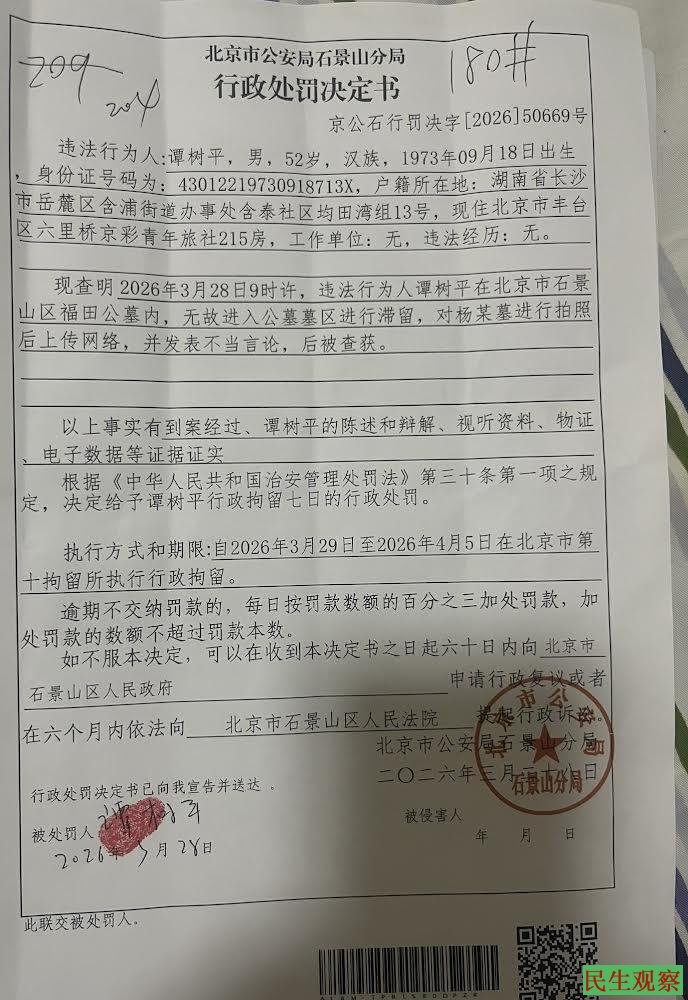 209
204
180#
北京市公安局石景山分局
行政处罚决定书
京公石行罚决字[2026]50669号
违法行为人:谭树平，男，52岁，汉族，1973年09月18日出生
，身份证号码为：43012219730918713X，户籍所在地：湖南省长沙
市岳麓区含浦街道办事处含泰社区均田湾组13号，现住北京市丰台
区六里桥京彩青年旅社215房，工作单位：无，违法经历：无。
现查明 2026年3月28日9时许，违法行为人谭树平在北京市石景
山区福田公墓内，无故进入公墓墓区进行滞留，对杨某墓进行拍照
后上传网络，并发表不当言论，后被查获。
以上事实有到案经过、谭树平的陈述和辩解、视听资料、物证
、电子数据等证据证实
根据《中华人民共和国治安管理处罚法》第三十条第一项之规
定，决定给予谭树平行政拘留七日的行政处罚。
执行方式和期限:自2026年3月29日至2026年4月5日在北京市第
十拘留所执行行政拘留。
逾期不交纳罚款的，每日按罚款数额的百分之三加处罚款，加
处罚款的数额不超过罚款本数。
如不服本决定，可以在收到本决定书之日起六十日内向 北京市
石景山区人民政府 申请行政复议或者
在六个月内依法向 北京市石景山区人民法院 提起行政诉讼。
北京市公安局石景山分局
二〇二六年三月二十八日
北京市公安局
石景山分局
行政处罚决定书已向我宣告并送达 。
被处罚人 谭树平
2026年3月28日
被侵害人
年 月 日
此联交被处罚人。
民生观察